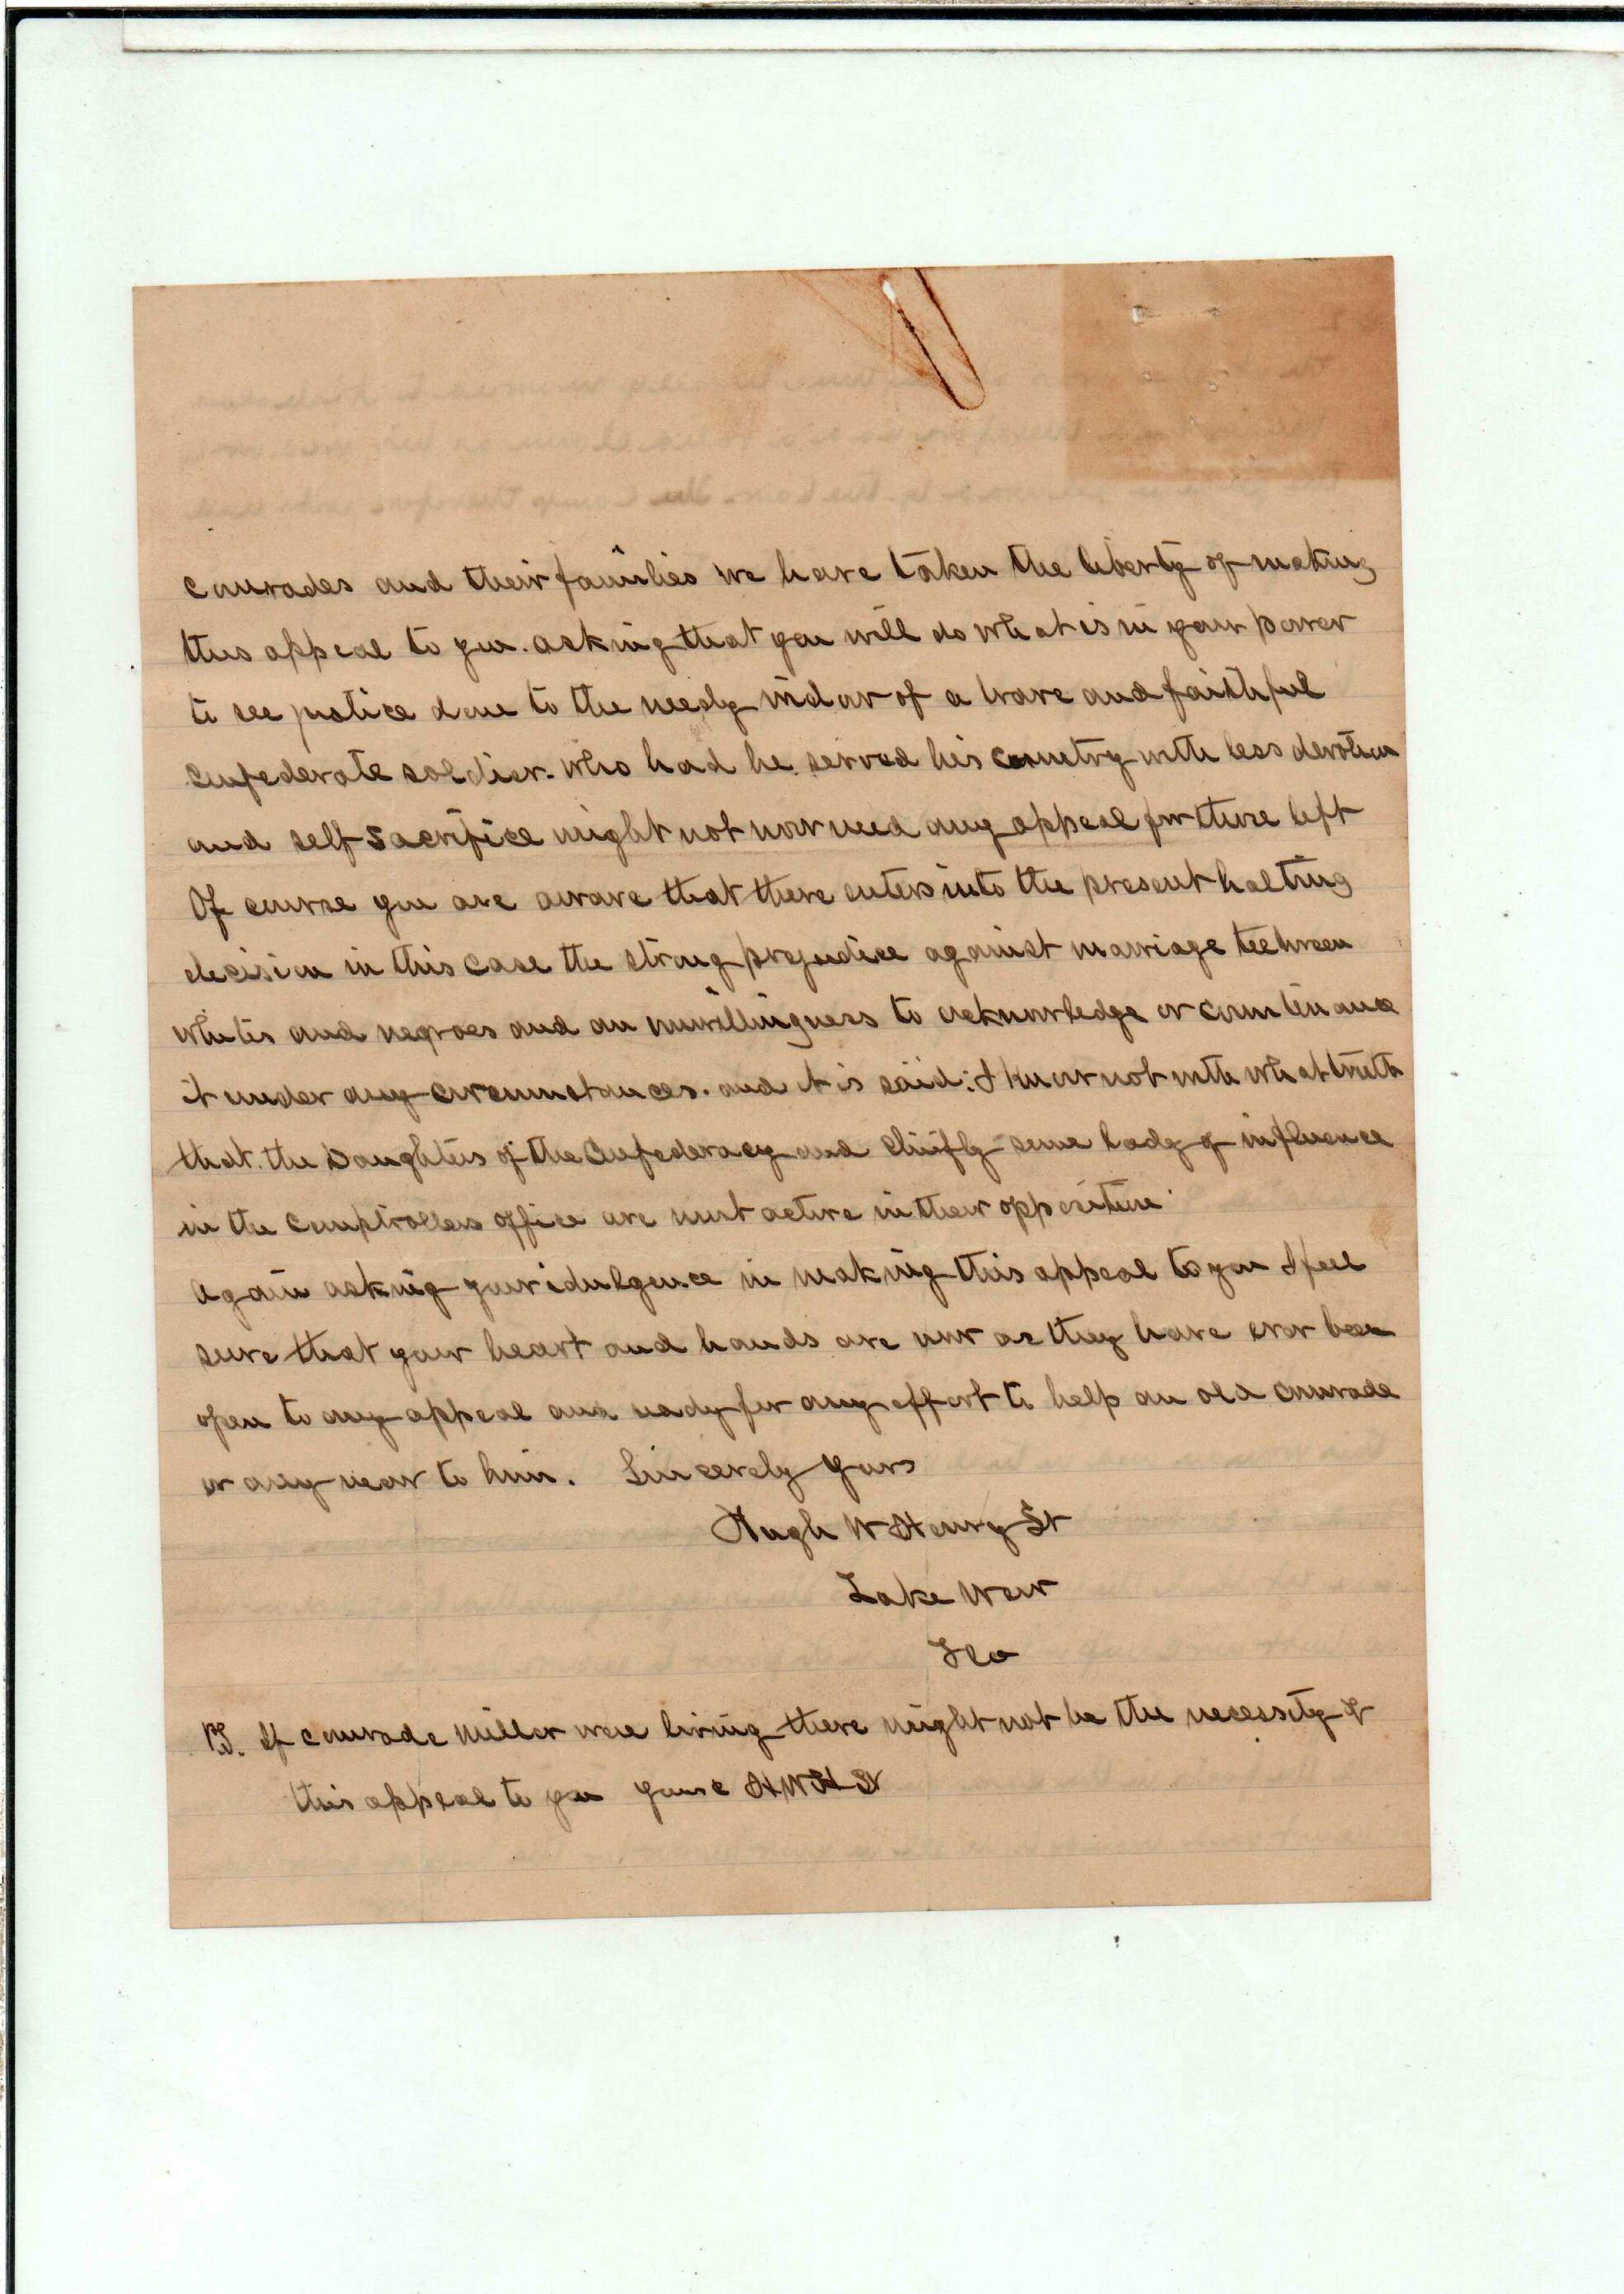 comrades and their families we have taken the liberty of making
this appeal to you. asking that you will do what is in your power
to see justice done to the needy widow of a brave and faithful
confederate soldier. who had he served his country with less devotion
and self sacrifice might not now need any appeal for those left
Of course you are aware that there enters into the present halting
decision in this case the strong prejudice against marriage between
whites and negroes and an unwillingness to acknowledge or countenance
it under any circumstances. and it is said: I know not with what truth
that. the Daughters of the Confederacy and chiefly some lady of influence
in the comptrollers office are most active in their opposition.
Again asking your idulgence in making this appeal to you I feel
sure that your heart and hands are now as they have ever been
open to any appeal and ready for any effort to help an old comrade
or any near to him. Sincerely yours
Hugh W Henry Sr
Lake Weir
Fla
PS. If comrade Miller were living there might not be the necessity of
this appeal to you yours HWH Sr